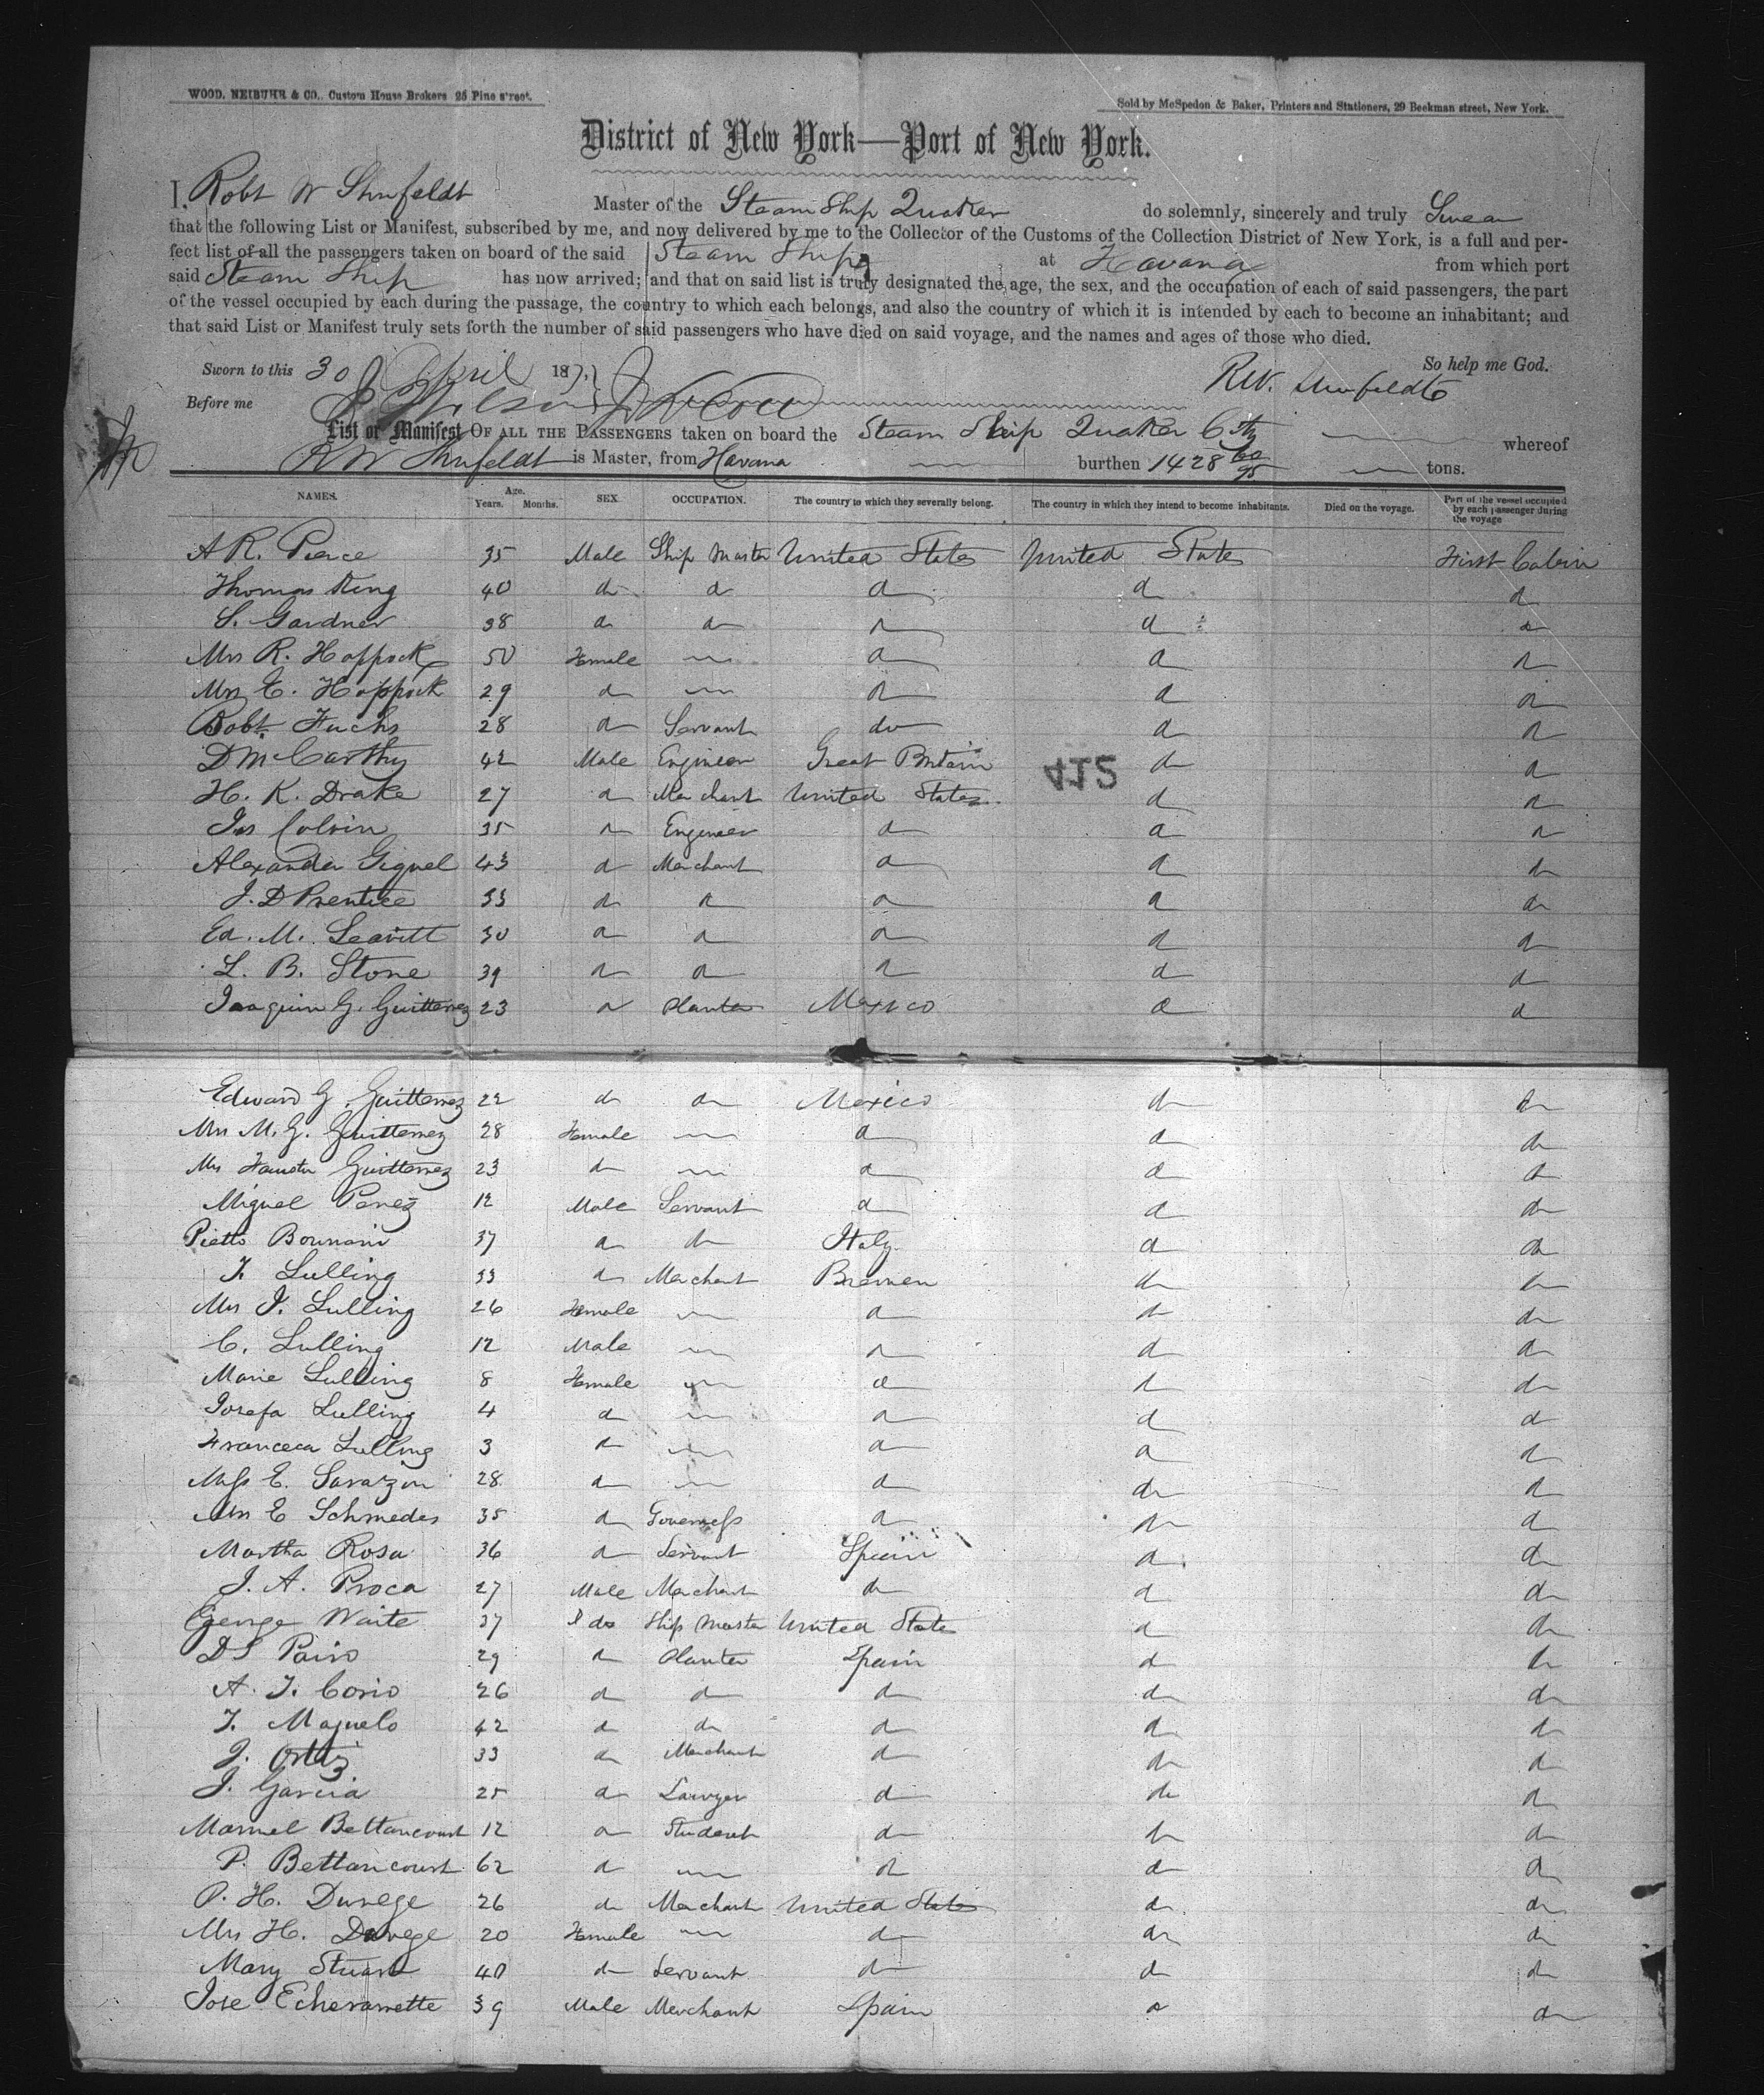 WOOD, NEIBUHR & CO., Custom House Brokers 25 Pine street.
Sold by McSpedon & Baker, Printers and Stationers, 29 Beekman street, New York.
District of New York—Port of New York.
I, Robt W Shufeldt Master of the Steam Ship Quaker do solemnly, sincerely and truly Swear
that the following List or Manifest, subscribed by me, and now delivered by me to the Collector of the Customs of the Collection District of New York, is a full and per-
fect list of all the passengers taken on board of the said Steam Ship at Havana from which port
said Steam Ship has now arrived; and that on said list is truly designated the age, the sex, and the occupation of each of said passengers, the part
of the vessel occupied by each during the passage, the country to which each belongs, and also the country of which it is intended by each to become an inhabitant; and
that said List or Manifest truly sets forth the number of said passengers who have died on said voyage, and the names and ages of those who died.
So help me God.
Sworn to this 30 April 18
R.W. Shufeldt
Before me
List or Manifest OF ALL THE PASSENGERS taken on board the Steam Ship Quaker City whereof
R W Shufeldt is Master, from Havana burthen 1428 60/95 tons.
NAMES. Age. Years. Months. SEX. OCCUPATION. The country to which they severally belong. The country in which they intend to become inhabitants. Died on the voyage. Part of the vessel occupied by each passenger during the voyage
A R. Pierce 35 Male Ship Master United States United States First Cabin
Thomas King 40 do do do do do
S. Gardner 38 do do do do do
Mrs R. Hoppock 50 Female do do do
Mrs E. Hoppock 29 do do do do
Robt. Fuchs 28 do Servant do do do
D McCarthy 42 Male Engineer Great Britain do do
412
H. K. Drake 27 do Merchant United States do do
Jas Colvin 35 do Engineer do do do
Alexander Giquel 43 do Merchant do do do
J. D Prentice 33 do do do do do
Ed. M. Leavitt 30 do do do do do
L. B. Stone 39 do do do do do
Joaquin G. Guitterrez 23 do Planter Mexico do do
Edward G. Guitterrez 22 do do Mexico do do
Mrs M. G. Guitterrez 28 Female do do do
Mrs Fausta Guitterrez 23 do do do do
Miguel Perez 12 Male Servant do do do
Pietto Bournani 37 do do Italy do do
F. Lulling 33 do Merchant Bremen do do
Mrs F. Lulling 26 Female do do do
C. Lulling 12 Male do do do
Marie Lulling 8 Female do do do
Josefa Lulling 4 do do do do
Franceca Lulling 3 do do do do
Miss E. Sarazin 28 do do do do
Mrs E Schmedes 35 do Governess do do do
Martha Rosa 36 do Servant Spain do do
J. A. Proca 27 Male Merchant do do do
George Waite 37 do Ship Master United States do do
D S Pairo 29 do Planter Spain do do
A. J. Corio 26 do do do do do
J. Majuelo 42 do do do do do
J. Ortiz 33 do Merchant do do do
J. Garcia 25 do Lawyer do do do
Manuel Bettancourt 12 do Student do do do
P. Bettancourt 62 do do do do
P. H. Durege 26 do Merchant United States do do
Mrs H. Durege 20 Female do do do
Mary Stuart 40 do Servant do do do
Jose Echevarrette 39 Male Merchant Spain do do